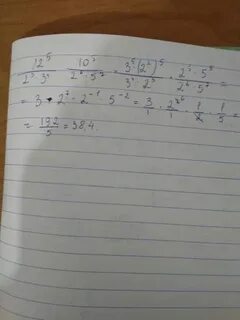 12⁵/2³·3⁴ · 10⁵/2⁶·5⁷ = 3⁵·(2²)⁵/3⁴·2³ · 2⁵·5⁵/2⁶·5⁷ =
= 3 · 2⁷ · 2⁻¹ · 5⁻² = 3/1 · 2⁶/1 · 1/5 =
= 192/5 = 38,4